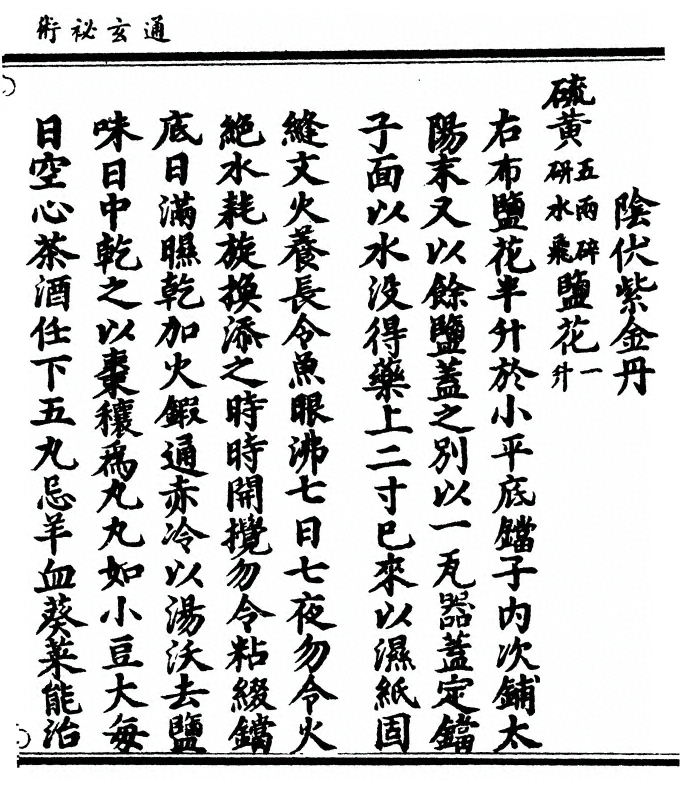 通玄祕術
陰伏紫金丹
硫黃五兩碎研水飛鹽花一升
右布鹽花半升於小平底鐺子內次鋪太
陽末又以餘鹽蓋之別以一瓦器蓋定鐺
子面以水没得藥上二寸巳來以濕紙固
縫文火養長令魚眼沸七日七夜勿令火
絕水耗旋換添之時時開攪勿令粘綴鐺
底日滿㬠乾加火鍜通赤冷以湯沃去鹽
味日中乾之以棗穰爲丸丸如小豆大每
日空心茶酒任下五丸忌羊血葵菜能治